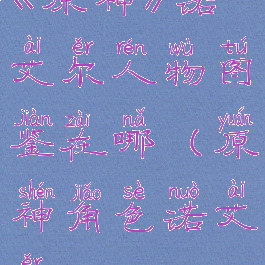 《原神》诺
ài ěr rén wù tú
艾尔人物图
jiàn zài nǎ yuán
鉴在哪(原
shén jiǎo sè nuò ài
神角色诺艾
ěr